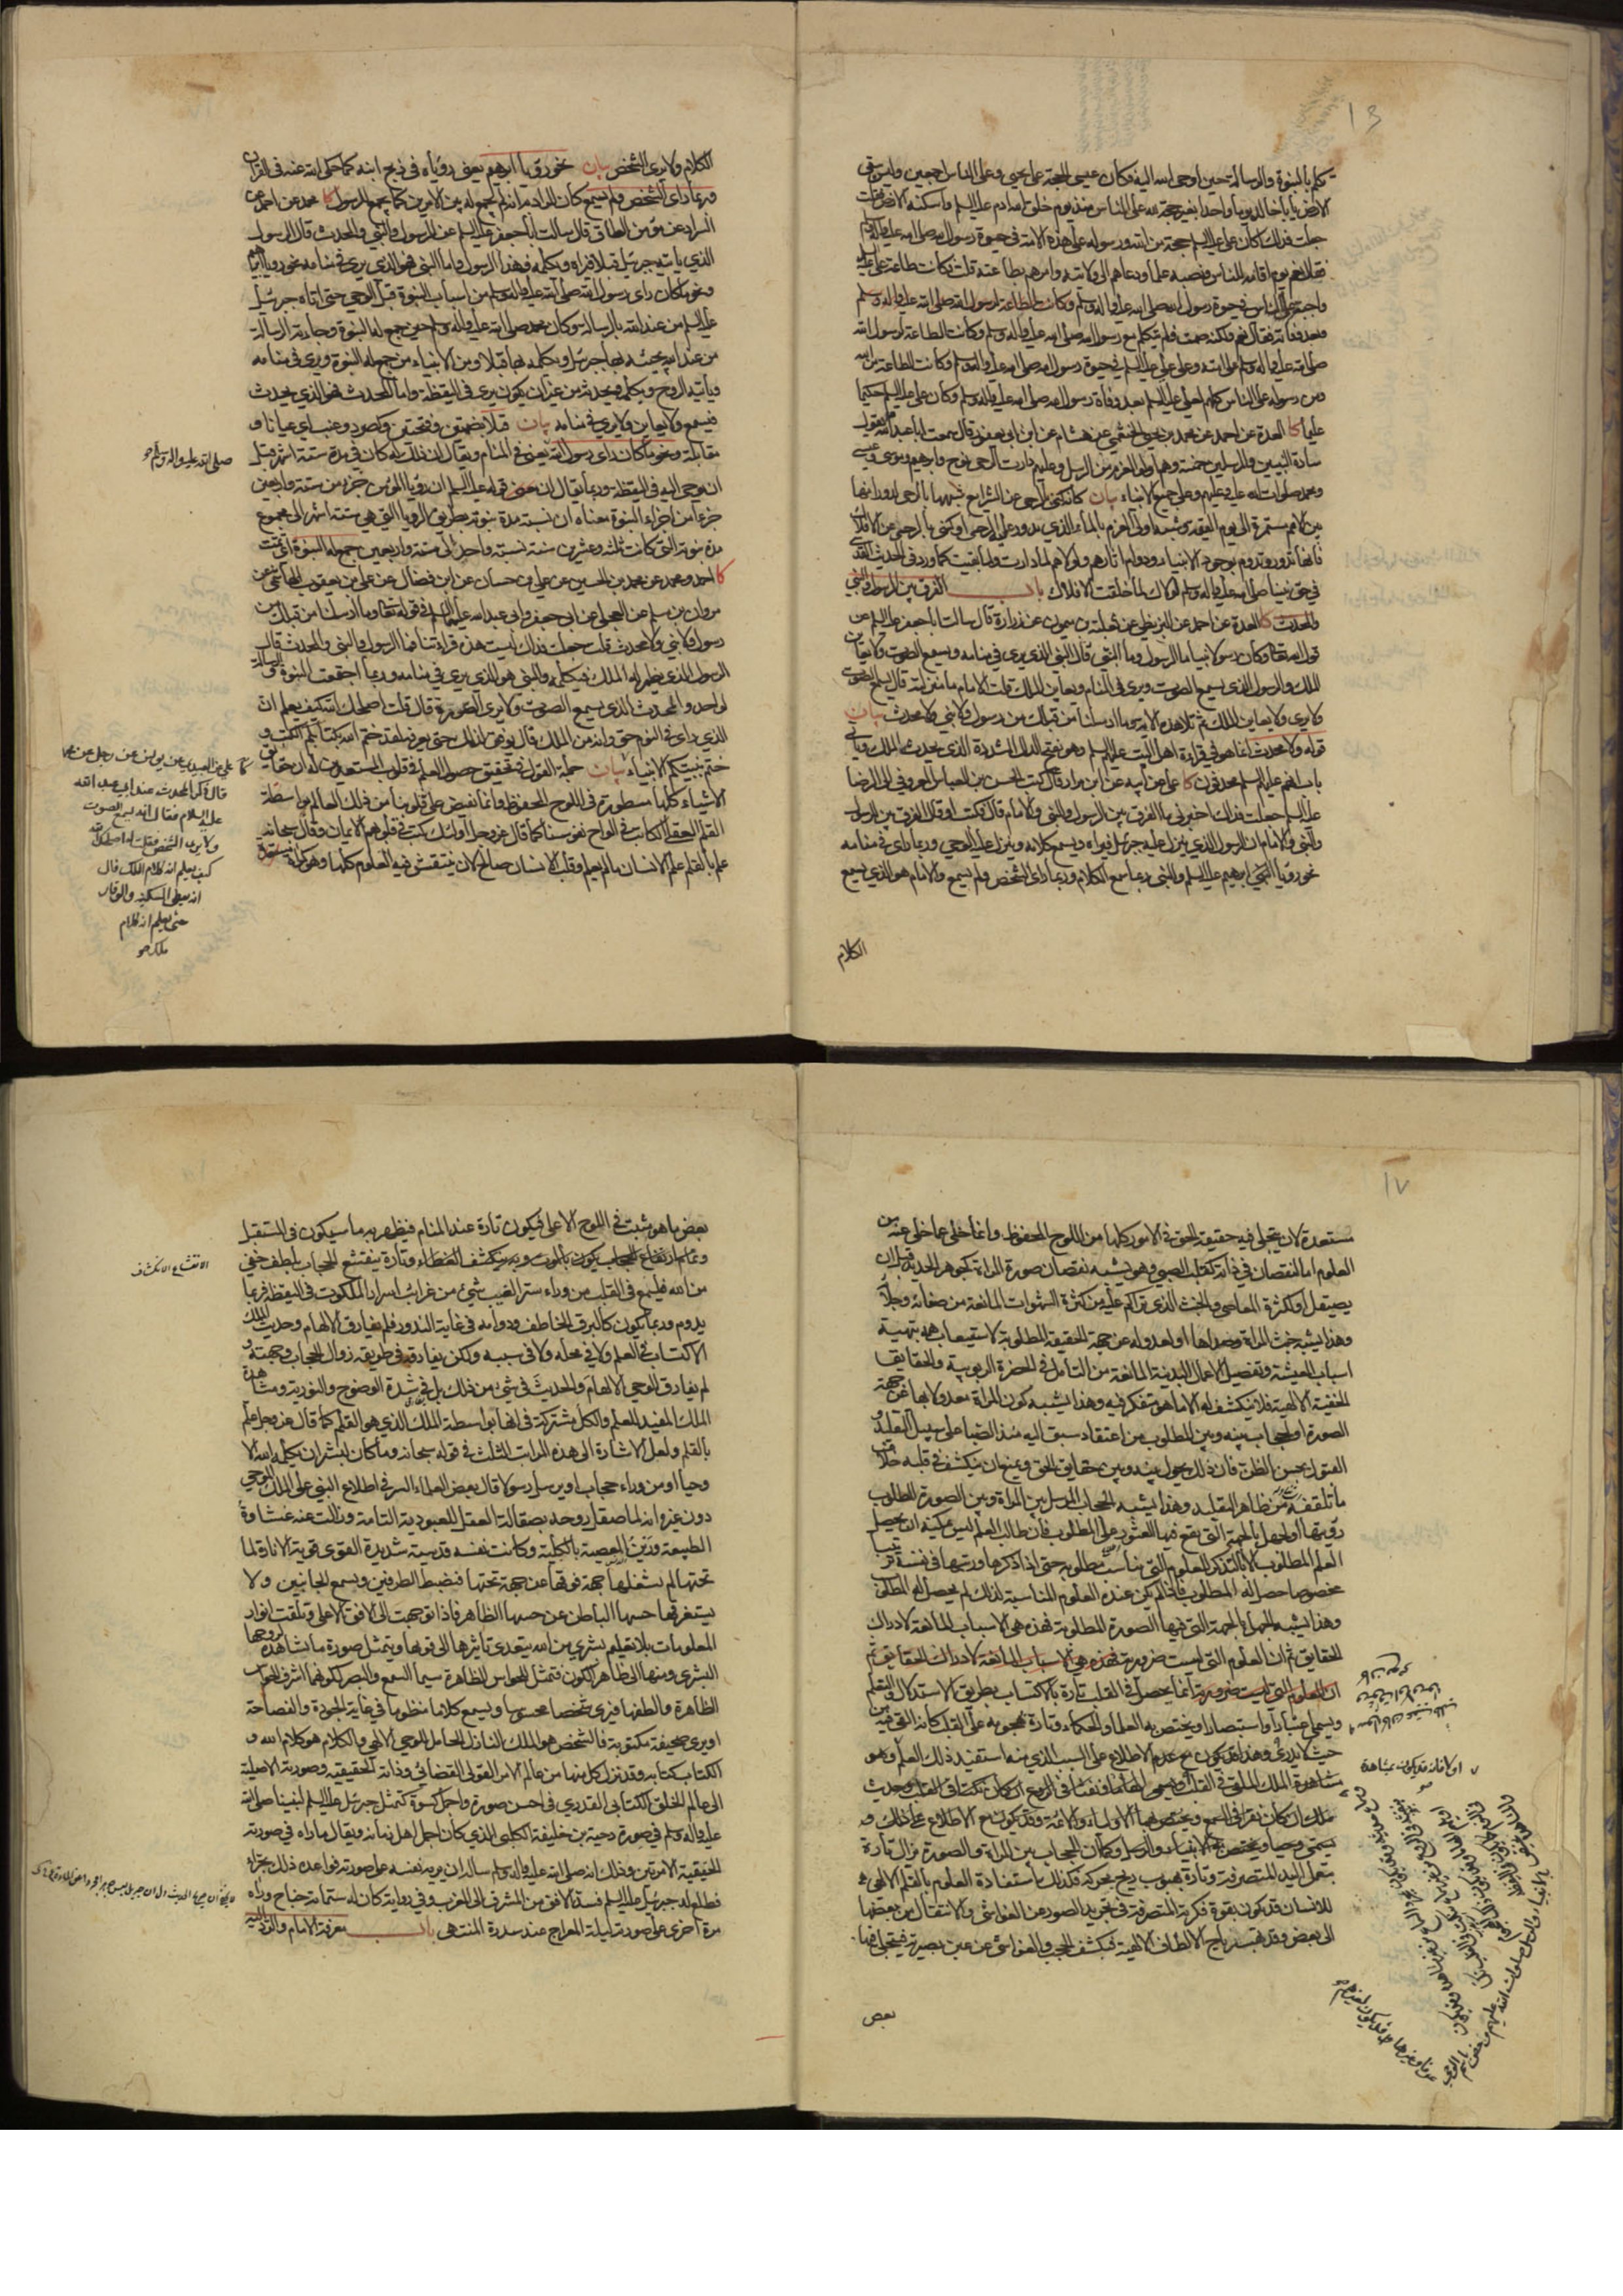 تكلم بالنبوة والرسالة حين أوحى الله اليه فكان عيسى الحجة على يحيى وعلى الناس اجمعين وليس تبقى
الارض يا با خالد يوما واحدا بغير حجة لله على الناس منذ يوم خلق الله ادم عليه السلم واسكنه الارض فقلت
جعلت فداك اكان علي عليه السلم حجة من الله ورسوله على هذه الامة في حيوة رسول الله صلى الله عليه واله
فقال نعم يوم اقامه للناس ونصبه علما ودعاهم الى ولايته وامرهم بطاعته قلت وكانت طاعة علي عليه
واجبة على الناس في حيوة رسول الله صلى الله عليه واله وسلم وكانت الطاعة لرسول الله صلى الله عليه واله وسلم
وبعد وفاته فقال نعم ولكنه صمت فلم يتكلم مع رسول الله صلى الله عليه واله وسلم وكانت الطاعة لرسول الله
صلى الله عليه واله وسلم على امته وعلى علي عليه السلم في حيوة رسول الله صلى الله عليه واله وسلم وكانت الطاعة من الله
ومن رسوله على الناس كلهم لعلي عليه السلم بعد وفاة رسول الله صلى الله عليه واله وسلم وكان علي عليه السلم حكيما
عليما كا العدة عن احمد عن محمد بن يحيى الخثعمي عن هشام عن ابن ابي يعفور قال سمعت ابا عبد الله يقول
سادة النبيين والمرسلين خمسة وهم اولو العزم من الرسل وعليهم دارت الرحى نوح وابرهيم وموسى وعيسى
ومحمد صلوات الله عليه وعليهم وعلى جميع الانبياء بيان كانه كنى بالرحى عن الشرايع شبهها بالرحى لدورانها
بين الامم مستمرة الى يوم القيمة وشبه اولي العزم بالماء الذي يدور عليه الرحى او كنى بالرحى عن الافلاك
فانها تدور وتدوم بوجود الانبياء ودوام اثارهم ولولاهم لما دارت ولما بقيت كما ورد في الحديث القدسي
في حق نبينا صلى الله عليه واله وسلم لولاك لما خلقت الافلاك باب الفرق بين الرسول والنبي
والمحدث كا العدة عن احمد عن البزنطي عن ثعلبة بن ميمون عن زرارة قال سالت ابا جعفر عليه السلم عن
قول الله تعالى وكان رسولا نبيا ما الرسول وما النبي قال النبي الذي يرى في منامه ويسمع الصوت ولا يعاين
الملك والرسول الذي يسمع الصوت ويرى في المنام ويعاين الملك قلت الامام ما منزلته قال يسمع الصوت
ولا يرى ولا يعاين الملك ثم تلا هذه الاية وما ارسلنا من قبلك من رسول ولا نبي ولا محدث بيان
قوله ولا محدث انما هو في قراءة اهل البيت عليهم السلم وهو بفتح الدال المشددة الذي يحدثه الملك وياتي
باب انهم عليهم السلم محدثون كا علي عن ابيه عن ابن مرار قال كتب الحسن بن العباس المعروفي الى الرضا
عليه السلم جعلت فداك اخبرني ما الفرق بين الرسول والنبي والامام قال فكتب او قال الفرق بين الرسول
والنبي والامام ان الرسول الذي ينزل عليه جبرئيل فيراه ويسمع كلامه وينزل عليه الوحي وربما راى في منامه
نحو رؤيا ابرهيم عليه السلم والنبي ربما سمع الكلام وربما راى الشخص ولم يسمع والامام هو الذي يسمع
الكلام
الكلام ولا يرى الشخص بيان نحو رؤيا ابرهيم يعني رؤياه في ذبح ابنه كما حكى الله عنه في القران
وربما راى الشخص ولم يسمع كان المراد به انه لم يجمع له بين الامرين كما يجمع للرسول كا محمد عن احمد عن
السراد عن مؤمن الطاق قال سالت ابا جعفر عليه السلم عن الرسول والنبي والمحدث قال الرسول
الذي ياتيه جبرئيل قبلا فيراه ويكلمه فهذا الرسول واما النبي فهو الذي يرى في منامه نحو رؤيا ابرهيم
ونحو ما كان راى رسول الله صلى الله عليه واله وسلم من اسباب النبوة قبل الوحي حتى اتاه جبرئيل
عليه السلم من عند الله بالرسالة وكان محمد صلى الله عليه واله وسلم حين جمع له النبوة وجاءته الرسالة
من عند الله يجيئه بها جبرئيل ويكلمه بها قبلا ومن الانبياء من جمع له النبوة ويرى في منامه
وياتيه الروح ويكلمه ويحدثه من غير ان يكون يرى في اليقظة واما المحدث فهو الذي يحدث
فيسمع ولا يعاين ولا يرى في منامه بيان قبلا بضمتين وفتحتين وكصرد وعنب اي عيانا و
مقابلة ونحو ما كان راى رسول الله يعني في المنام ويقال ان ذلك له كان في مدة ستة اشهر قبل
ان يوحى اليه في اليقظة وربما يقال ان معنى قوله عليه السلم ان رؤيا المؤمن جزء من ستة واربعين
جزءا من اجزاء النبوة معناه ان نسبة مدة نبوته بطريق الرؤيا التي هي ستة اشهر الى مجموع
مدة نبوته التي كانت ثلثة وعشرين سنة نسبة واحد الى ستة واربعين جمع له النبوة اي تمت
كا احمد ومحمد عن محمد بن الحسين عن علي بن حسان عن ابن فضال عن علي بن يعقوب الهاشمي عن
مروان بن مسلم عن العجلي عن ابي جعفر وابي عبد الله عليهما السلم في قوله تعالى وما ارسلنا من قبلك من
رسول ولا نبي ولا محدث قلت جعلت فداك ليست هذه قراءتنا فما الرسول والنبي والمحدث قال
الرسول الذي يظهر له الملك فيكلمه والنبي هو الذي يرى في منامه وربما اجتمعت النبوة والرسالة
لواحد والمحدث الذي يسمع الصوت ولا يرى الصورة قال قلت اصلحك الله كيف يعلم ان
الذي راى في النوم حق وانه من الملك قال يوفق لذلك حتى يعرفه لقد ختم الله بكتابكم الكتب و
ختم بنبيكم الانبياء بيان جملة القول في تحقيق حصول العلم في قلوب المستعدين له ان حقايق
الاشياء كلها مسطورة في اللوح المحفوظ وانما تفيض على قلوبنا من ذلك العالم بواسطة
القلم العقلي الكاتب في الواح نفوسنا كما قال عز وجل اولئك كتب في قلوبهم الايمان وقال سبحانه
علم بالقلم علم الانسان ما لم يعلم وقلب الانسان صالح لان ينتقش فيه العلوم كلها وهو كمراة
صلى الله عليه واله وسلم
كا علي عن العبيدي عن يونس عن رجل عن محمد
قال ذكر المحدث عند ابي عبد الله
عليه السلام فقال انه يسمع الصوت
ولا يرى الشخص فقلت له اصلحك الله
كيف يعلم انه كلام الملك قال
انه يعطى السكينة والوقار
حتى يعلم انه كلام
ملك
١٧
مستعدة لان يتجلى فيه حقيقة الحق في الامور كلها من اللوح المحفوظ وانما خلى عما خلى عنه من
العلوم اما لنقصان في ذاته كقلب الصبي وهو يشبه نقصان صورة المراة كجوهر الحديد قبل ان
يصيقل او لكثرة المعاصي والخبث الذي تراكم عليه من كثرة الشهوات المانعة من صفائه وجلائه
وهذا يشبه خبث المراة وصداها او لعدوله عن جهة الحقيقة المطلوبة لاستيعاب همه بتهيئة
اسباب المعيشة وتفصيل الاعمال البدنية المانعة من التامل في الحضرة الربوبية والحقايق
الخفية الالهية فلا ينكشف له الا ما هو متفكر فيه وهذا يشبه كون المراة معدولا بها عن جهة
الصورة او لحجاب بينه وبين المطلوب من اعتقاد سبق اليه منذ الصبا على سبيل التقليد و
القبول بحسن الظن فان ذلك يحول بينه وبين حقايق الحق ويمنع ان ينكشف في قلبه خلاف
ما تلقفه من ظاهر التقليد وهذا يشبه الحجاب المرسل بين المراة وبين الصورة المطلوب
رؤيتها او لجهل بالجهة التي يقع فيها العثور على المطلوب فان طالب العلم ليس يمكنه ان يحصل
العلم المطلوب الا بالتذكر للعلوم التي تناسب مطلوبه حتى اذا تذكرها ورتبها في نفسه ترتيبا
مخصوصا حصل له المطلوب فاذا لم يكن عنده العلوم المناسبة لذلك لم يحصل له المطلوب
وهذا يشبه الجهل بالجهة التي فيها الصورة المطلوبة فهذه هي الاسباب المانعة لادراك
الحقايق ثم ان العلوم التي ليست ضرورية فهذه هي الاسباب المانعة لادراك الحقايق ثم
ان العلوم التي ليست ضرورية انما يحصل في القلب تارة بالاكتساب بطريق الاستدلال والتعلم
ويسمى اعتبارا واستبصارا ويختص به العلماء والحكماء وتارة بهجومه على القلب كانه القي فيه من
حيث لا يدرى وهذا قد يكون مع عدم الاطلاع على السبب الذي منه استفيد ذلك العلم وهو
مشاهدة الملك الملقي في القلب ويسمى الهاما ونفثا في الروع ان كان نكتا في القلب وحديث
ملك ان كان نقرا في السمع ويختص بها الاولياء والائمة وقد يكون مع الاطلاع على ذلك و
يسمى وحيا ويختص به الانبياء والرسل وكما ان الحجاب بين المراة والصورة يزال تارة
بتعمل اليد المتصرفة وتارة بهبوب ريح يحركه فكذلك استفادة العلوم بالقلم الالهي
للانسان قد يكون بقوة فكرته المتصرفة في تجريد الصور عن الغواشي والانتقال من بعضها
الى بعض وقد تهب رياح الالطاف الالهية فيكشف الحجب والغواشي عن عين بصيرته فيتجلى فيها
بعض
او لا فانه قد يكون بمشاهدة
بعض ما هو مثبت في اللوح الاعلى فيكون تارة عند المنام فيظهر به ما سيكون في المستقبل
وتمام ارتفاع الحجاب يكون بالموت وبه ينكشف الغطاء وتارة ينقشع الحجاب بلطف خفي
من الله فيلمع في القلب من وراء ستر الغيب شيء من غرائب اسرار الملكوت في اليقظة فربما
يدوم وربما يكون كالبرق الخاطف ودوامه في غاية الندور فلم يفارق الالهام وحديث الملك
الاكتساب في العلم ولا في محله ولا في سببه ولكن يفارقه في طريقة زوال الحجاب وجهته و
لم يفارق الوحي الالهام والحديث في شيء من ذلك بل في شدة الوضوح والنورية ومشاهدة
الملك المفيد للعلم والكل مشتركة في انها بواسطة الملك الذي هو القلم كما قال عز وجل علم
بالقلم ولعل الاشارة الى هذه المراتب الثلث في قوله سبحانه وما كان لبشر ان يكلمه الله الا
وحيا او من وراء حجاب او يرسل رسولا قال بعض العلماء السر في اطلاع النبي على الملك الموحي
دون غيره انه لما صقل روحه بصقالة العقل للعبودية التامة وزالت عنه غشاوة
الطبيعة ورين المعصية بالكلية وكانت نفسه قدسية شديدة القوى قوية الانارة لما
تحتها لم يشغلها جهة فوقها عن جهة تحتها فتضبط الطرفين ويسع للجانبين ولا
يستغرقها حسها الباطن عن حسها الظاهر فاذا توجهت الى الافق الاعلى وتلقت انوار
المعلومات بلا تعليم بشري من الله يتعدى تاثيرها الى قواها ويتمثل صورة ما تشاهده لروحها
البشري ومنها الى ظاهر الكون فتمثل للحواس الظاهرة سيما السمع والبصر لكونهما اشرف الحواس
الظاهرة والطفها فيرى شخصا محسوسا ويسمع كلاما منظوما في غاية الجودة والفصاحة
او يرى صحيفة مكتوبة فالشخص هو الملك النازل الحامل للوحي الالهي والكلام هو كلام الله و
الكتاب كتابه وقد نزل كل منها من عالم الامر القولي القضائي وذاته الحقيقية وصورته الاصلية
الى عالم الخلق الكتابي القدري في احسن صورة واجمل كسوة كتمثل جبرئيل عليه السلم لنبينا صلى الله
عليه واله وسلم في صورة دحية بن خليفة الكلبي الذي كان اجمل اهل زمانه ويقال ما راه في صورته
الحقيقية الا مرتين وذلك انه صلى الله عليه واله وسلم ساله ان يريه نفسه على صورته فواعده ذلك بحراء
فطلع له جبرئيل عليه السلم فسد الافق من المشرق الى المغرب وفي رواية كان له ستمائة جناح وراه
مرة اخرى على صورته ليلة المعراج عند سدرة المنتهى باب معرفة الامام والرد اليه
الانقشاع الانكشاف